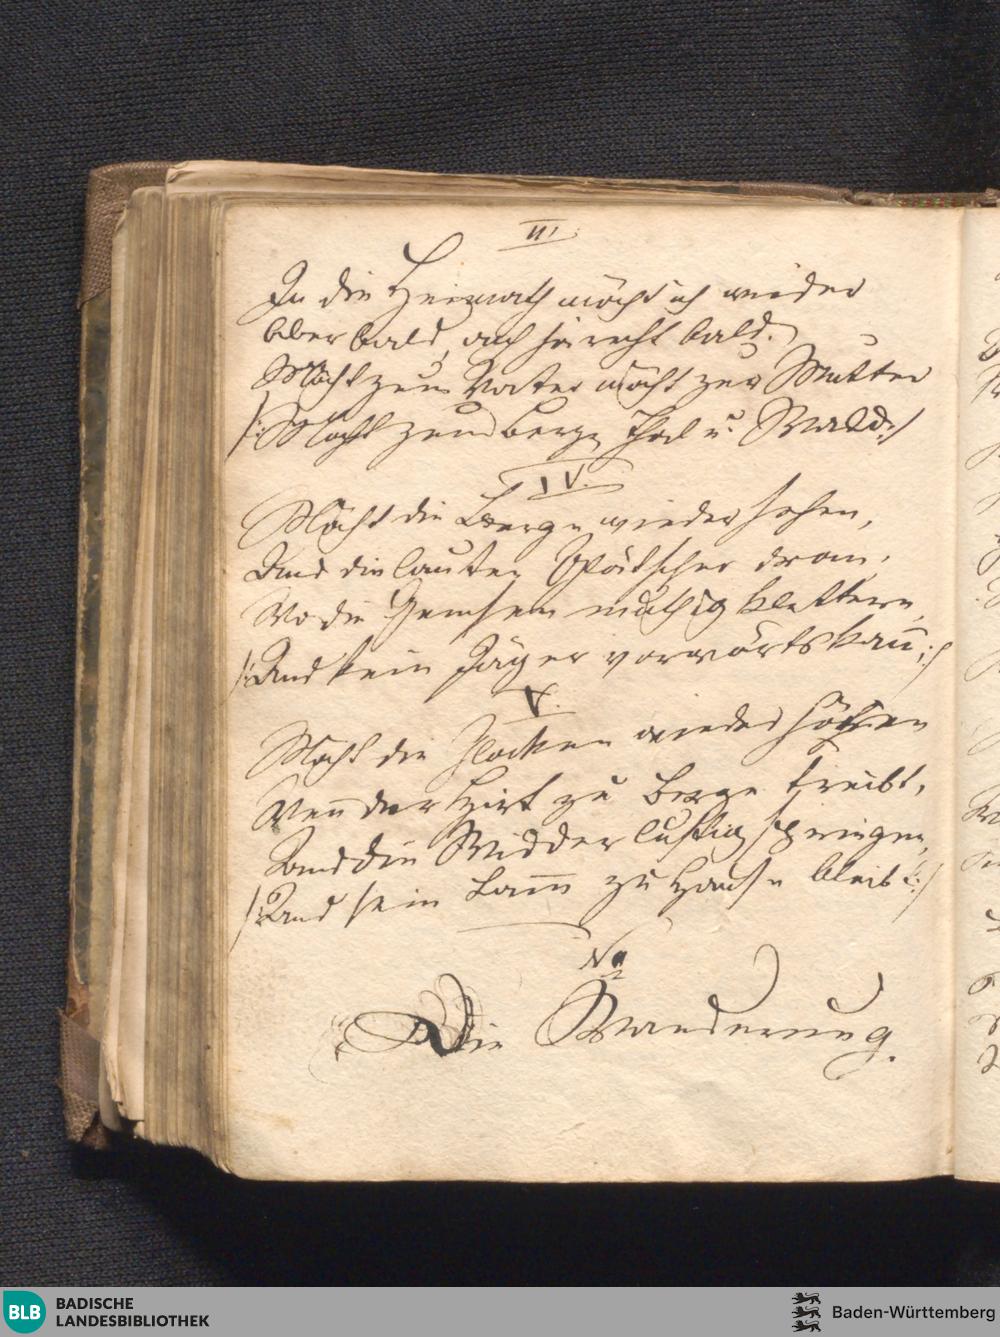 III.
In die Heimath möcht ich wieder
Aber bald, ach ja recht bald.
Möcht zum Vater möcht zur Mutter
/: Möcht zu Berge Thal u. Wald :/
IV.
Möcht die Berge wieder sehen,
Und die lauten Gletscher dran,
Wo die Gemsen muthig klettern,
/: Und kein Jäger vorwärts kann :/
V.
Möcht die Glocken wieder hören
Wenn der Hirt zu Berge treibt,
Und die Widder lustig springen,
/: Und kein Lamm zu Hause bleibt :/
No
Die Wanderung.
BLB BADISCHE
LANDESBIBLIOTHEK
Baden-Württemberg